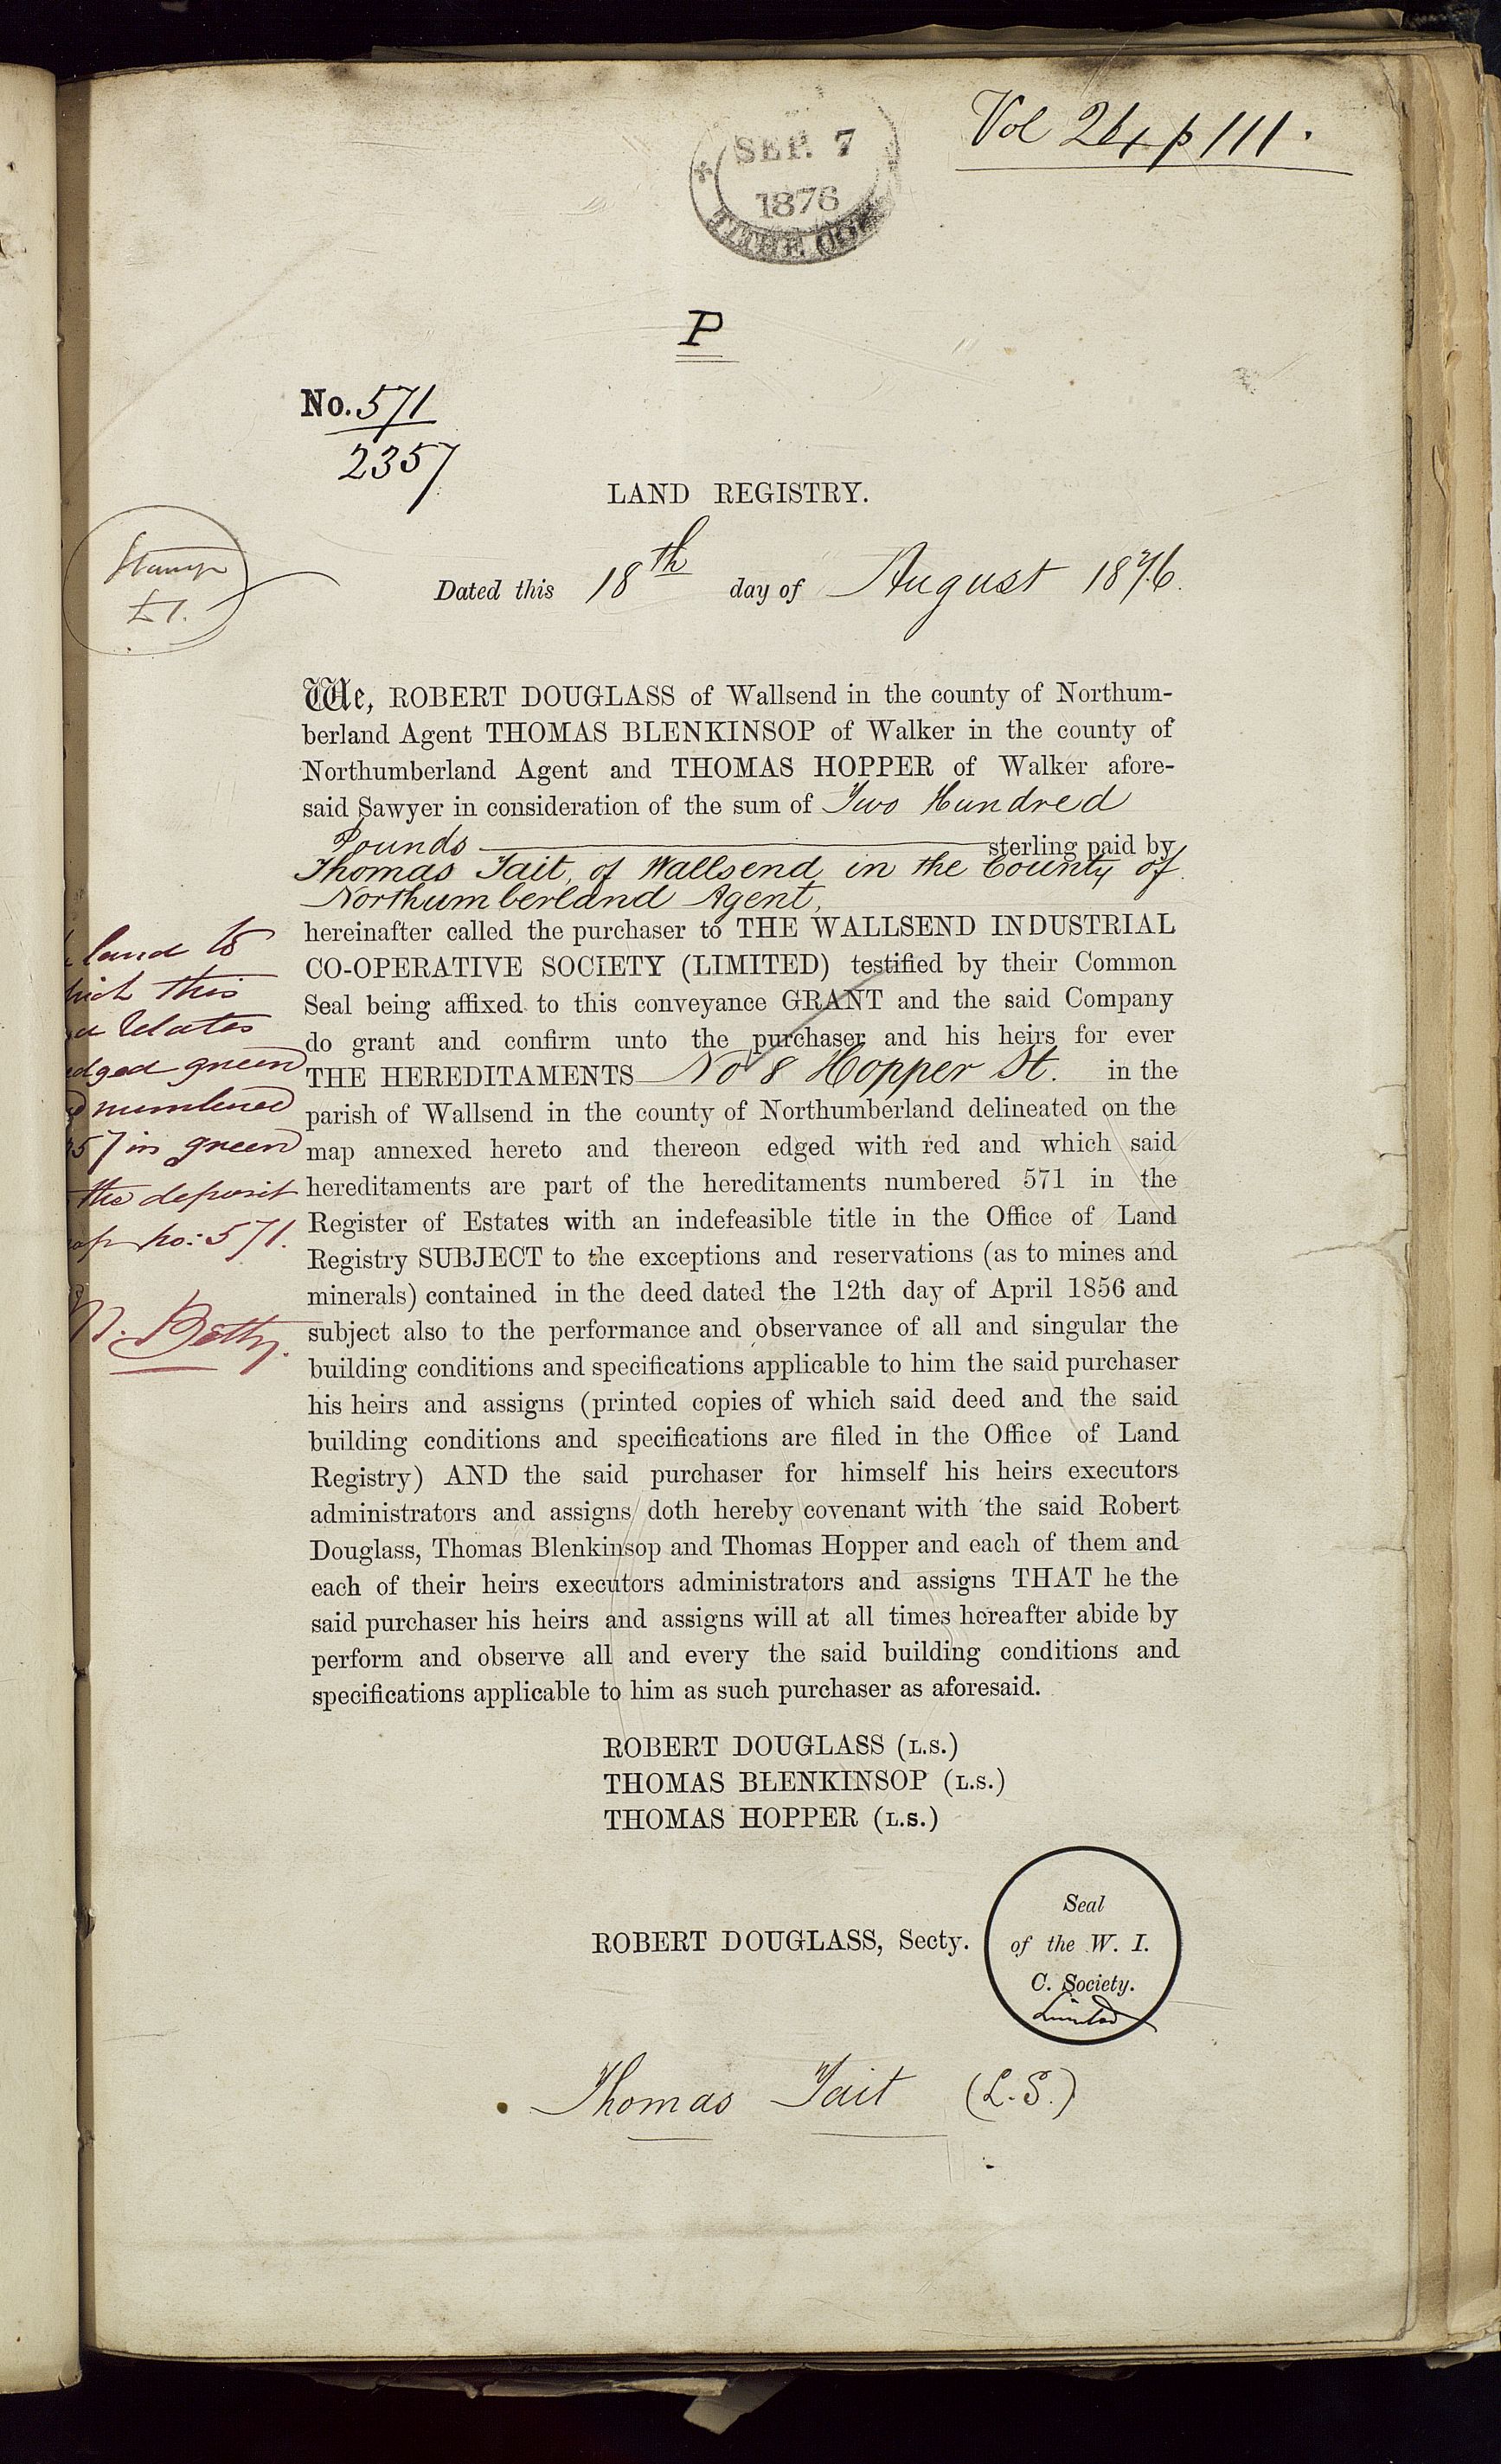 Vol 24, p 111.
SEP. 7
1876
P
No. 571
2357
LAND REGISTRY.
Stamp
£1.
Dated this 18th day of August 1876.
We, ROBERT DOUGLASS of Wallsend in the county of Northum-
berland Agent THOMAS BLENKINSOP of Walker in the county of
Northumberland Agent and THOMAS HOPPER of Walker afore-
said Sawyer in consideration of the sum of Two Hundred
Pounds sterling paid by
Thomas Tait, of Wallsend in the County of
Northumberland Agent,
hereinafter called the purchaser to THE WALLSEND INDUSTRIAL
CO-OPERATIVE SOCIETY (LIMITED) testified by their Common
Seal being affixed to this conveyance GRANT and the said Company
do grant and confirm unto the purchaser and his heirs for ever
THE HEREDITAMENTS No 8 Hopper St. in the
parish of Wallsend in the county of Northumberland delineated on the
map annexed hereto and thereon edged with red and which said
hereditaments are part of the hereditaments numbered 571 in the
Register of Estates with an indefeasible title in the Office of Land
Registry SUBJECT to the exceptions and reservations (as to mines and
minerals) contained in the deed dated the 12th day of April 1856 and
subject also to the performance and observance of all and singular the
building conditions and specifications applicable to him the said purchaser
his heirs and assigns (printed copies of which said deed and the said
building conditions and specifications are filed in the Office of Land
Registry) AND the said purchaser for himself his heirs executors
administrators and assigns doth hereby covenant with the said Robert
Douglass, Thomas Blenkinsop and Thomas Hopper and each of them and
each of their heirs executors administrators and assigns THAT he the
said purchaser his heirs and assigns will at all times hereafter abide by
perform and observe all and every the said building conditions and
specifications applicable to him as such purchaser as aforesaid.
land to
this
relates
edged green
numbered
57 in green
the deposit
no: 571.
ROBERT DOUGLASS (L.S.)
THOMAS BLENKINSOP (L.S.)
THOMAS HOPPER (L.S.)
ROBERT DOUGLASS, Secty.
Seal
of the W. I.
C. Society.
Limited
Thomas Tait (L.S.)